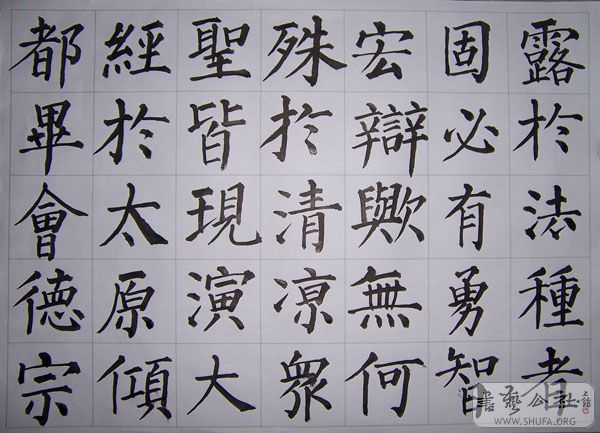 露於法種者
固必有勇智
宏辯歟無何
殊於清凉衆
聖皆現演大
經於太原傾
都畢會德宗
書藝公社
WWW.SHUFA.ORG